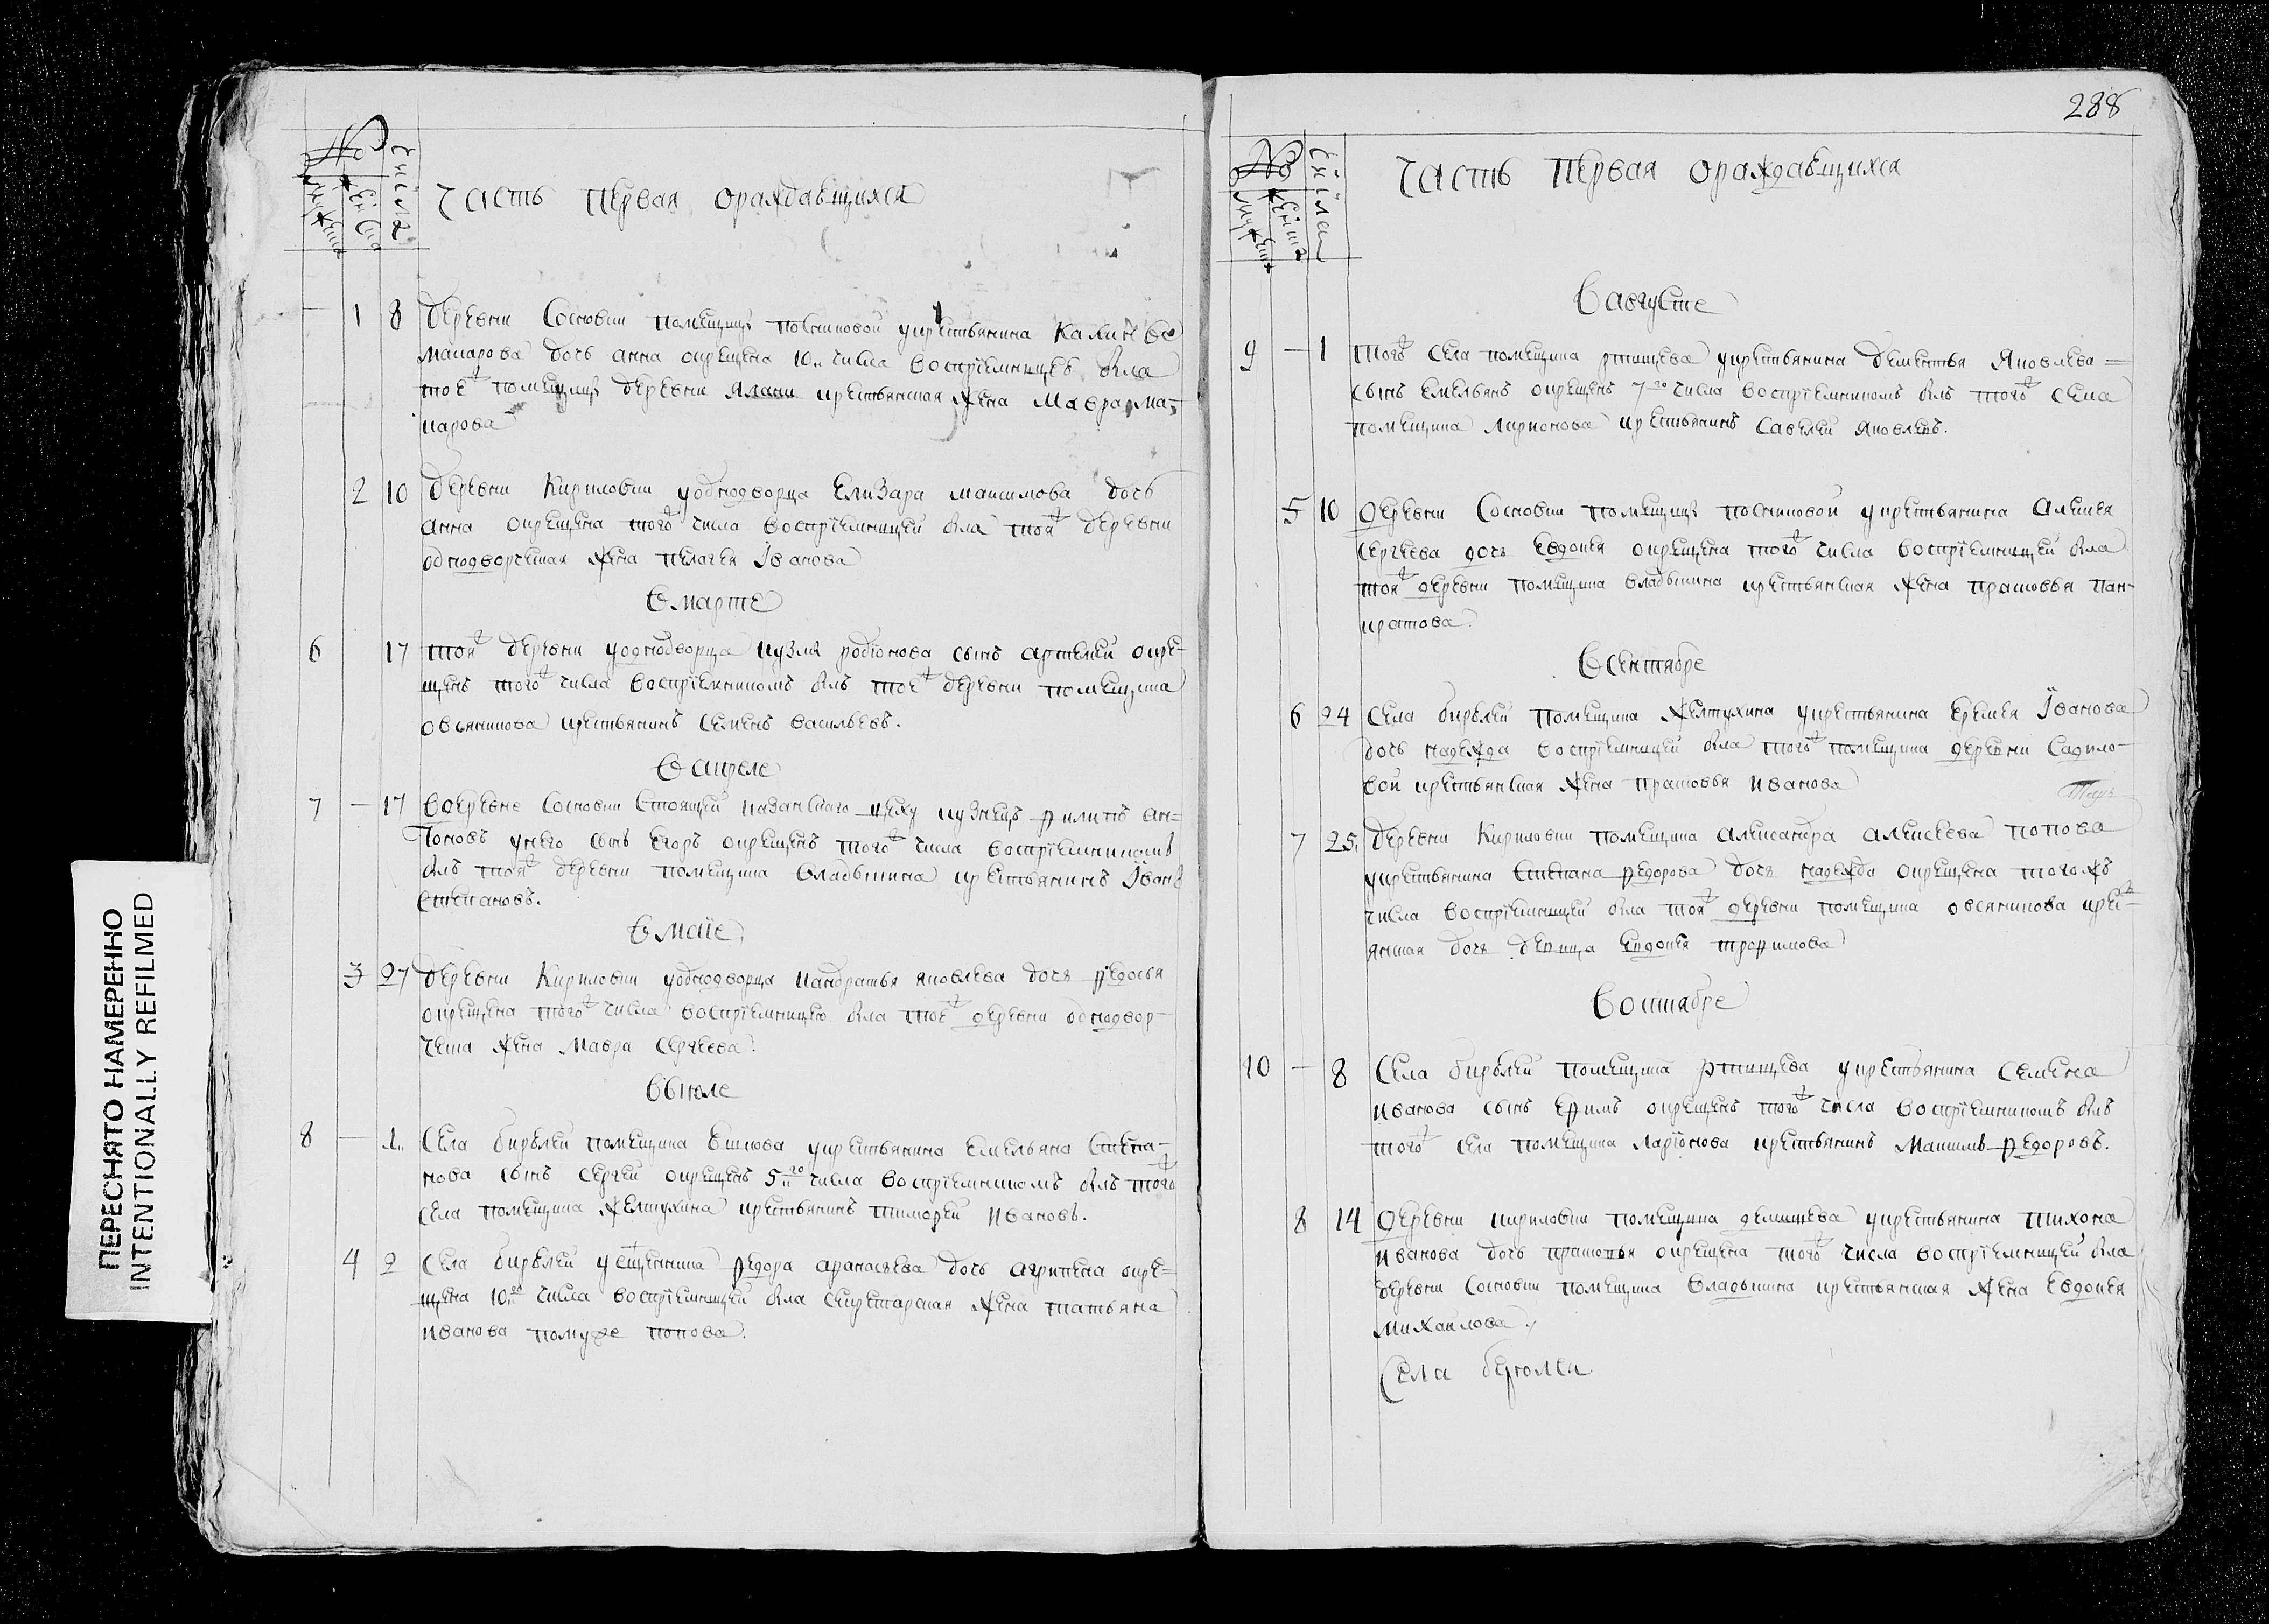 №
мужеска
женска
числа
Часть первая ораждавшихся
1 8 деревни Сосновки помещицы посниковой укрестьянина Калины
Макарова дочь анна окрещена 10. числа восприемницею была
тоеж помещицы деревни крестьянская жена Мавра Ма-
карова
2 10 деревни Кириловки уоднодворца Елизара максимова дочь
анна окрещена тогож числа восприемницей была тояж деревни
однодворческая жена пелагея Iванова
в марте
6 17 тояж деревни уоднодворца кузмы родiонова сынъ артемей окре-
щенъ тогож числа восприемникомъ былъ тоеж деревни помещика
овсяникова крестьянинъ семенъ васильевъ.
в апреле
7 — 17 вдеревне Сосновки Стоящей цеху кузнецъ филипъ ан-
тоновъ унего сынъ егоръ окрещенъ тогож числа восприемникомъ
былъ тояж деревни помещика владыкина крестьянинъ Iванъ
степановъ.
в маiе
3 27 деревни Кириловки уоднодворца кандратья яковлева дочь федосья
окрещена тогож числа восприемницею была тоеж деревни однодвор-
ческа жена Мавра Сергеева.
в июле
8 — 1. Села бирелей помещика укрестьянина емельяна степа-
нова сынъ сергей окрещенъ 5го числа восприемникомъ былъ тогож
села помещика желтухина крестьянинъ тимофей Ивановъ.
4 2 Села бирелей федора афанасьева дочь агрипена окре-
щена 10го числа восприемницей была секретарская жена татьяна
Иванова помуже попова.
288
№
мужеска
женска
числа
Часть первая ораждавшихся
в августе
9 — 1 тогож села помещика ртищева укрестьянина дементья Яковлева
сынъ емельянъ окрещенъ 7го числа восприемникомъ былъ тогож села
помещика Ларионова крестьянинъ Савелей Яковлевъ.
5 10 деревни Сосновки помещицы посниковой укрестьянина алексея
сергеева дочь евдокея окрещена тогож числа восприемницей была
тояж деревни помещика владыкина крестьянская жена прасковья пан-
кратова.
в сентябре
6 24 Села бирелей помещика желтухина укрестьянина еремея Iванова
дочь надежда восприемницей была тогож помещика деревни Садико-
вой крестьянская жена прасковья Иванова
7 25. деревни Кириловки помещика александра алексеева попова
укрестьянина степана федорова дочь надежда окрещена тогожъ
числа восприемницей была тояж деревни помещика овсяникова крест-
янская дочь девица евдокея трофимова
в октябре
10 — 8 Села бирелей помещика ртищева укрестьянина семена
Иванова сынъ ефимъ окрещенъ тогож числа восприемникомъ былъ
тогож села помещика Ларiонова крестьянинъ Максимъ федоровъ.
8 14 деревни кириловки помещика укрестьянина тихона
Иванова дочь прасковья окрещена тогож числа восприемницей была
деревни Сосновки помещика владыкина крестьянская жена евдокея
Михаилова.
Села
ПЕРЕСНЯТО НАМЕРЕННО
INTENTIONALLY REFILMED